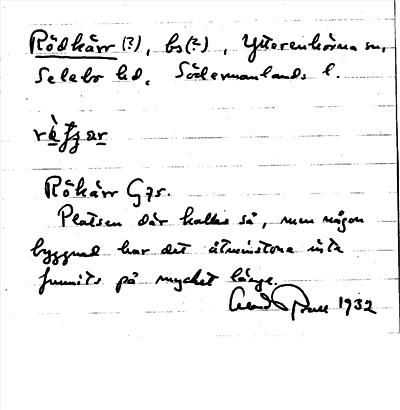 Rödkärr (?), bs (?), Ytterenhörna sn,
Selebo hd, Södermanlands l.
Rökärr G75.
Platsen där kallas så, men någon
byggnad har det åtminstone inte
funnits på mycket länge.
1932